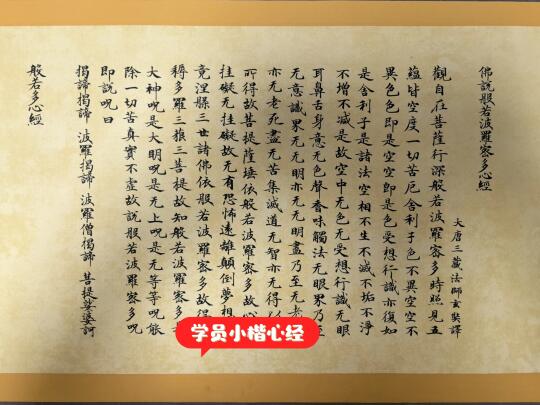 佛說般若波羅蜜多心經
大唐三藏法師玄奘譯
觀自在菩薩行深般若波羅蜜多時照見五
蘊皆空度一切苦厄舍利子色不異空空不
異色色即是空空即是色受想行識亦復如
是舍利子是諸法空相不生不滅不垢不淨
不增不減是故空中无色无受想行識无眼
耳鼻舌身意无色聲香味觸法无眼界乃至
无意識界无无明亦无无明盡乃至无老
亦无老死盡无苦集滅道无智亦无得以
所得故菩提薩埵依般若波羅蜜多故心
挂礙无挂礙故无有恐怖遠離顛倒夢想
竟涅槃三世諸佛依般若波羅蜜多故得
耨多羅三藐三菩提故知般若波羅蜜多
大神呪是大明呪是无上呪是无等等呪能
除一切苦真實不虛故說般若波羅蜜多呪
即說呪曰
揭諦揭諦 波羅揭諦 波羅僧揭諦 菩提娑婆訶
般若多心經
学员小楷心经